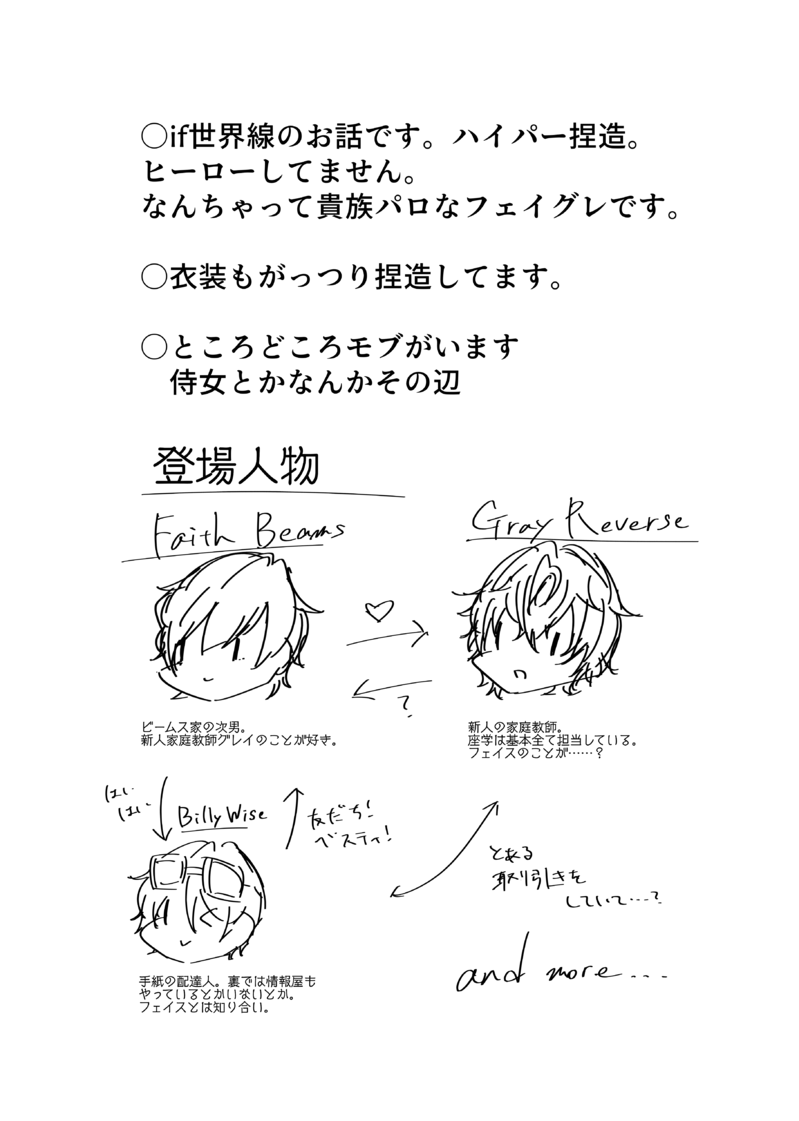 ○if世界線のお話です。ハイパー捏造。
ヒーローしてません。
なんちゃって貴族パロなフェイグレです。
○衣装もがっつり捏造してます。
○ところどころモブがいます
侍女とかなんかその辺
登場人物
Faith Beams
Gray Reverse
♡
?
ビームス家の次男。
新人家庭教師グレイのことが好き。
新人の家庭教師。
座学は基本全て担当している。
フェイスのことが……？
はい
はい
Billy Wise
友だち!
ベスティ!
とある
取り引きを
していて…?
手紙の配達人。裏では情報屋も
やっているとかいないとか。
フェイスとは知り合い。
and more....